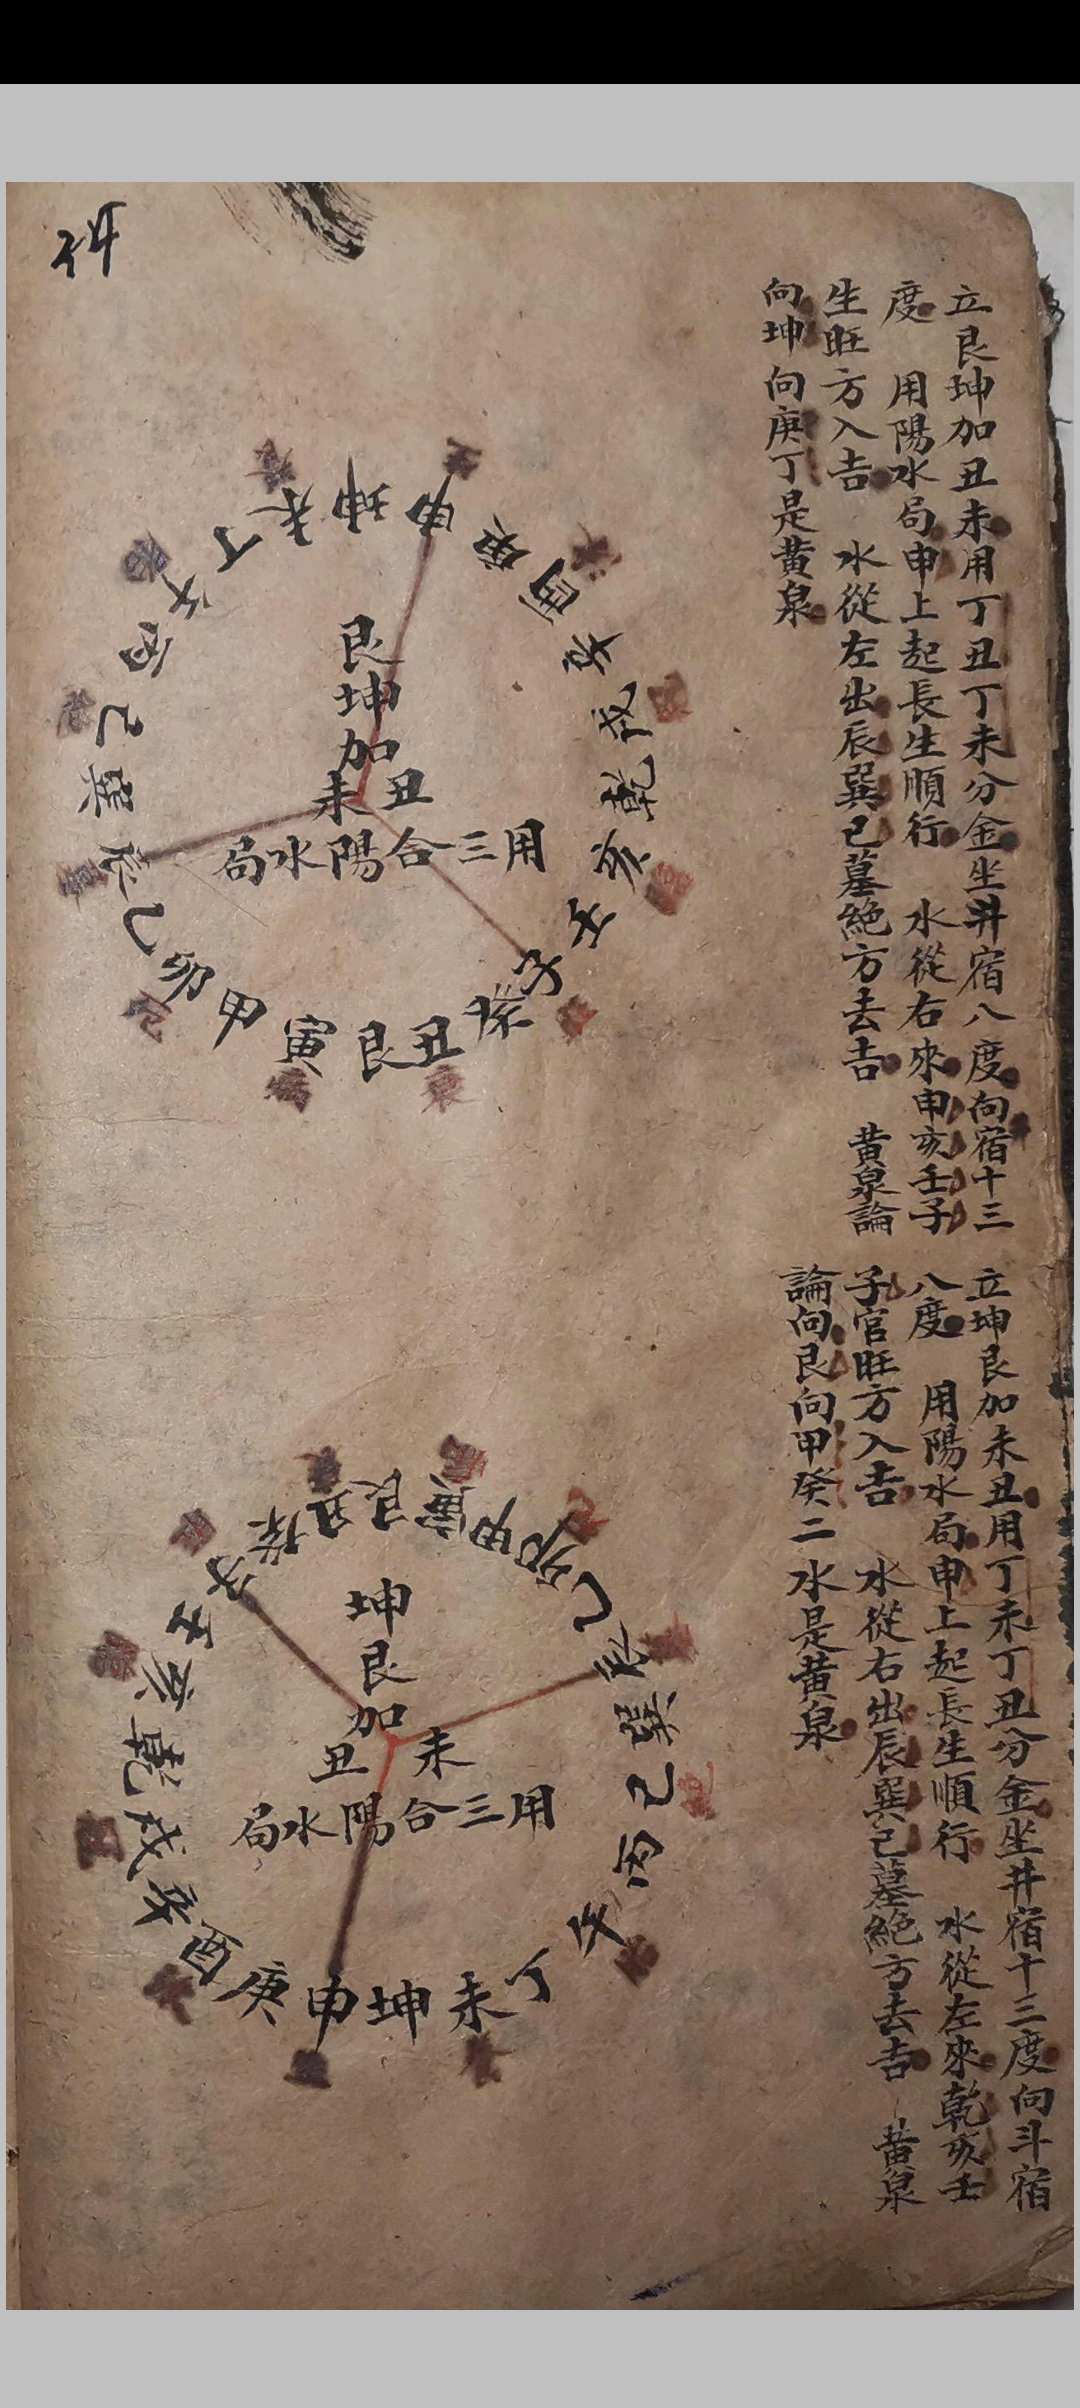 立艮坤加丑未用丁丑丁未分金坐井宿八度向宿十三
度 用陽水局申上起長生順行 水從右來申亥壬子
生旺方入吉 水從左出辰巽巳墓絕方去吉 黄泉論
向坤向庚丁是黄泉
艮
坤
加
未丑
用三合陽水局
坤申庚酉辛戌乾亥壬子癸丑艮寅甲卯乙辰巽巳丙午丁未
衰
病
立坤艮加未丑用丁未丁丑分金坐井宿十三度向斗宿
八度 用陽水局申上起長生順行 水從左來乾亥壬
子官旺方入吉 水從右出辰巽巳墓絕方去吉 黄泉
論向艮向甲癸二水是黄泉
坤
艮
加
丑未
用三合陽水局
艮寅甲卯乙辰巽巳丙午丁未坤申庚酉辛戌乾亥壬子癸丑